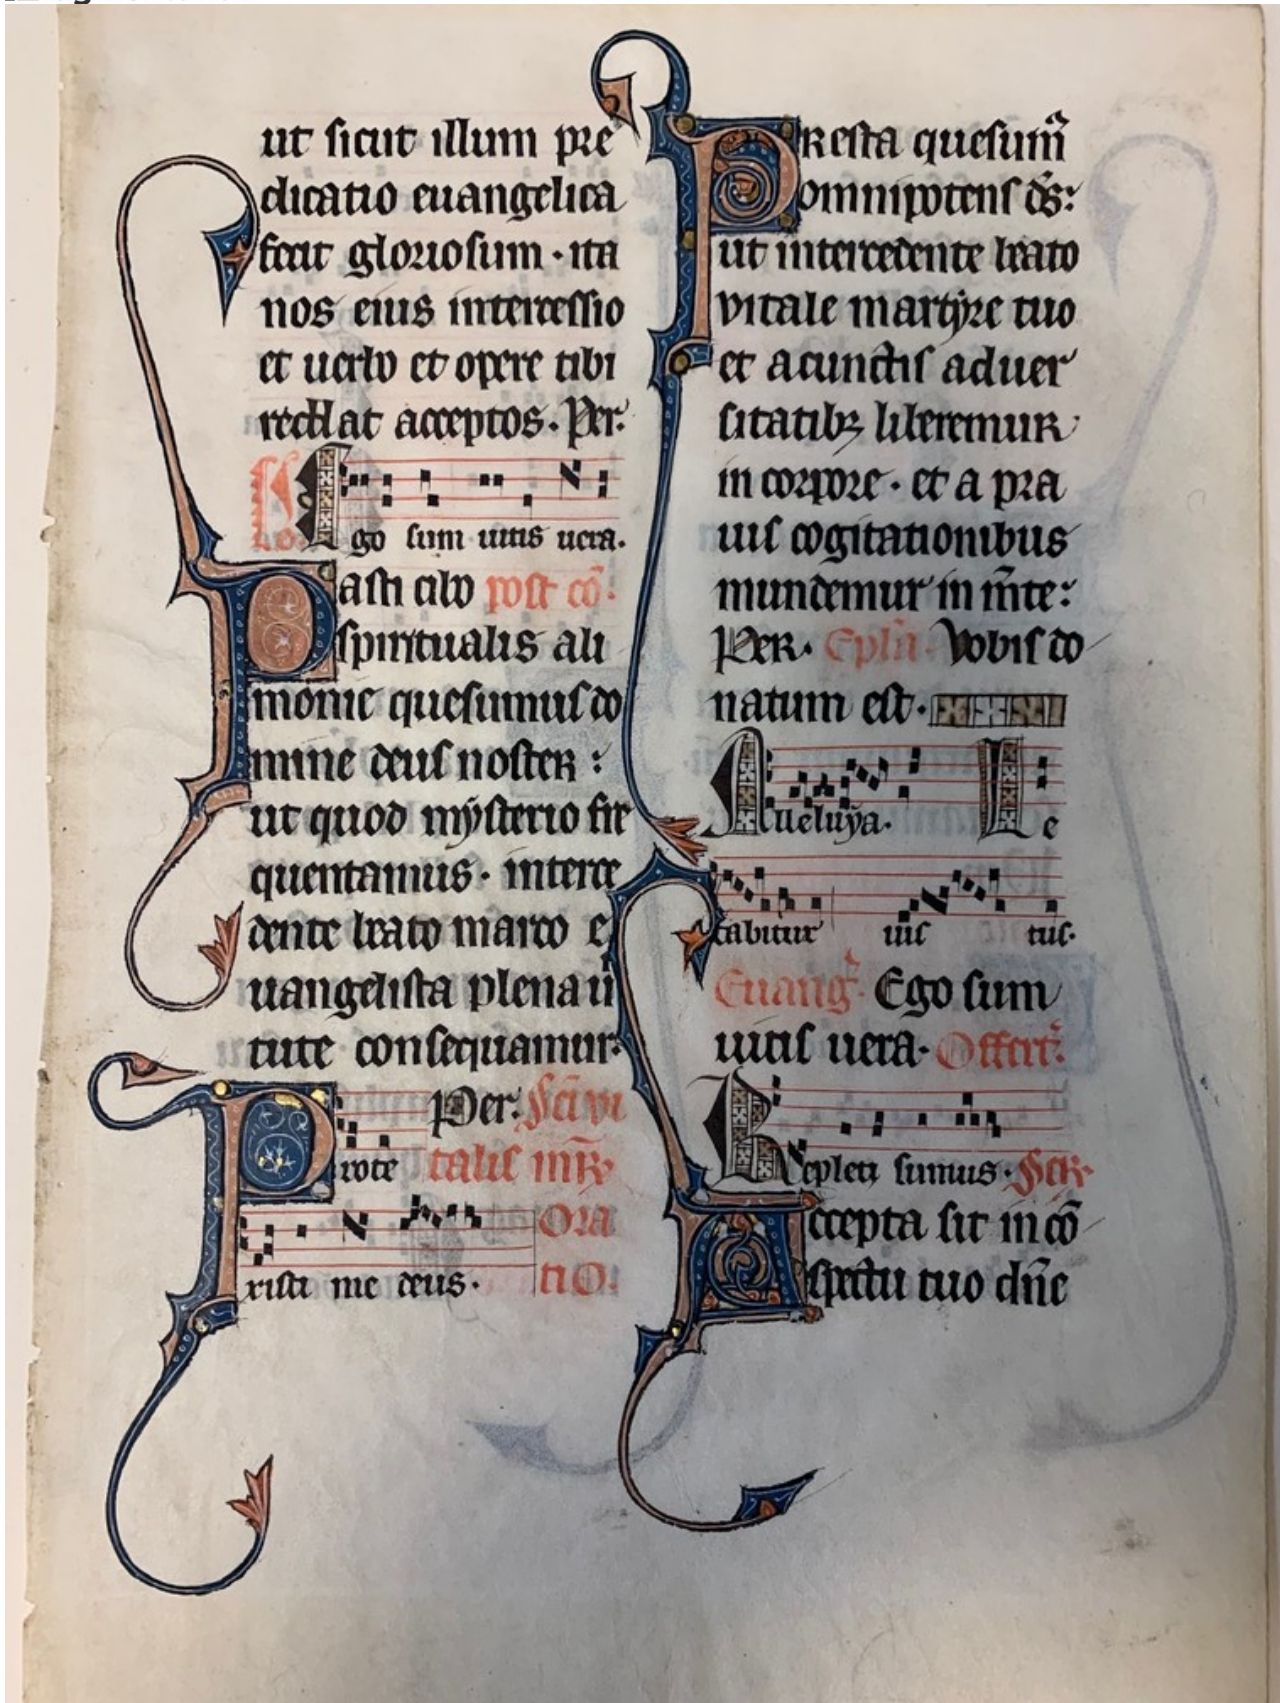 ut sicut illum pre
dicatio euangelica
fecit gloriosum · ita
nos eius intercessio
et uerbo et opere tibi
reddat acceptos · Per.
Co
Ego sum uitis uera.
Pasti cibo post cō.
spiritualis ali
monie quesumus do
mine deus noster :
ut quod mÿsterio fre
quentamus · interce
dente beato marco e
uangelista plena ui
tute consequamur.
Per. Sci vi
Prote talis mr̄
Ora
xisti me deus · tio.
Presta quesumꝰ
omnipotens ds̄:
ut intercedente beato
vitale martÿre tuo
et acunctis aduer
sitatibꝫ liberemur
in corpore · et a pra
uis cogitationibus
mundemur in mn̄te:
Per. Epl̄a. Vobis do
natum est.
Alleluÿa. Le
tabitur ius tus.
Euang. Ego sum
uitis uera. Offert.
Repleti sumus. Secr.
Accepta sit in cō
spectu tuo dn̄e